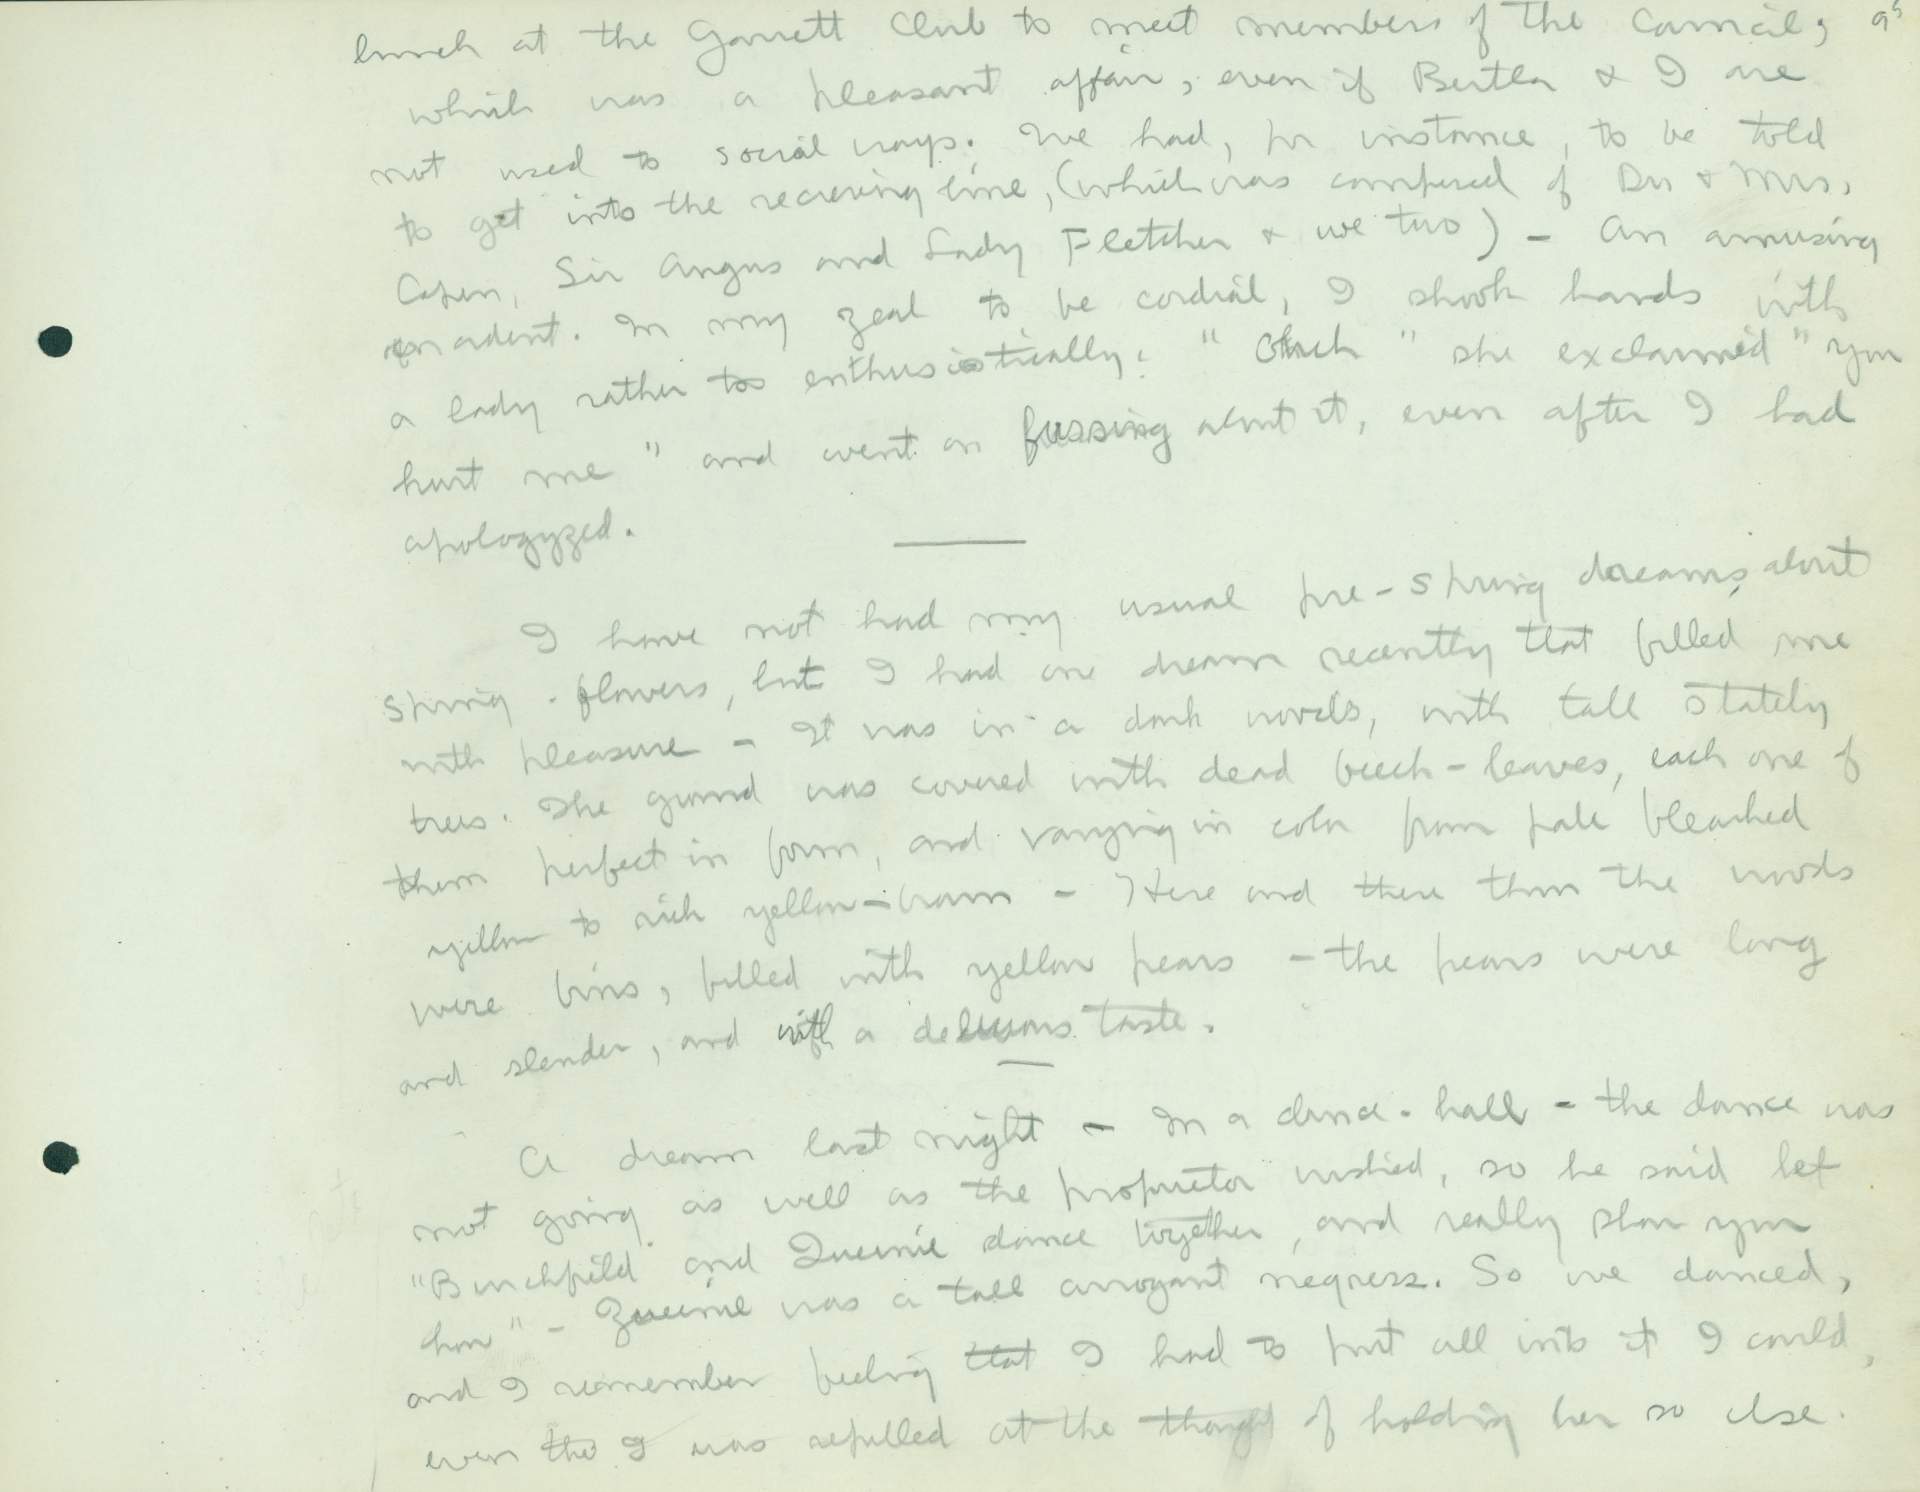 lunch at the Garrett Club to meet members of the Council, 95
which was a pleasant affair, even if Bertha & I are
not used to social ways. We had, for instance, to be told
to get into the receiving line, (which was composed of Dr & Mrs.
Capen, Sir Angus and Lady Fletcher & we two) - An amusing
incident. In my zeal to be cordial, I shook hands with
a lady rather too enthusiastically: "Ouch" she exclaimed "you
hurt me" and went on fussing about it, even after I had
apologyzed.
I have not had my usual pre-spring dreams, about
spring-flowers, but I had one dream recently that filled me
with pleasure - It was in a dark woods, with tall stately
trees. The ground was covered with dead beech-leaves, each one of
them perfect in form, and varying in color from pale bleached
yellow to rich yellow-brown - Here and there thru the woods
were bins, filled with yellow pears - the pears were long
and slender, and with a delicious taste.
A dream last night - In a dance-hall - the dance was
not going as well as the proprietor wished, so he said let
"Burchfield and Queenie dance together, and really show you
how" - Queenie was a tall arrogant negress. So we danced,
and I remember feeling that I had to put all into it I could,
even tho I was repelled at the thought of holding her so close.